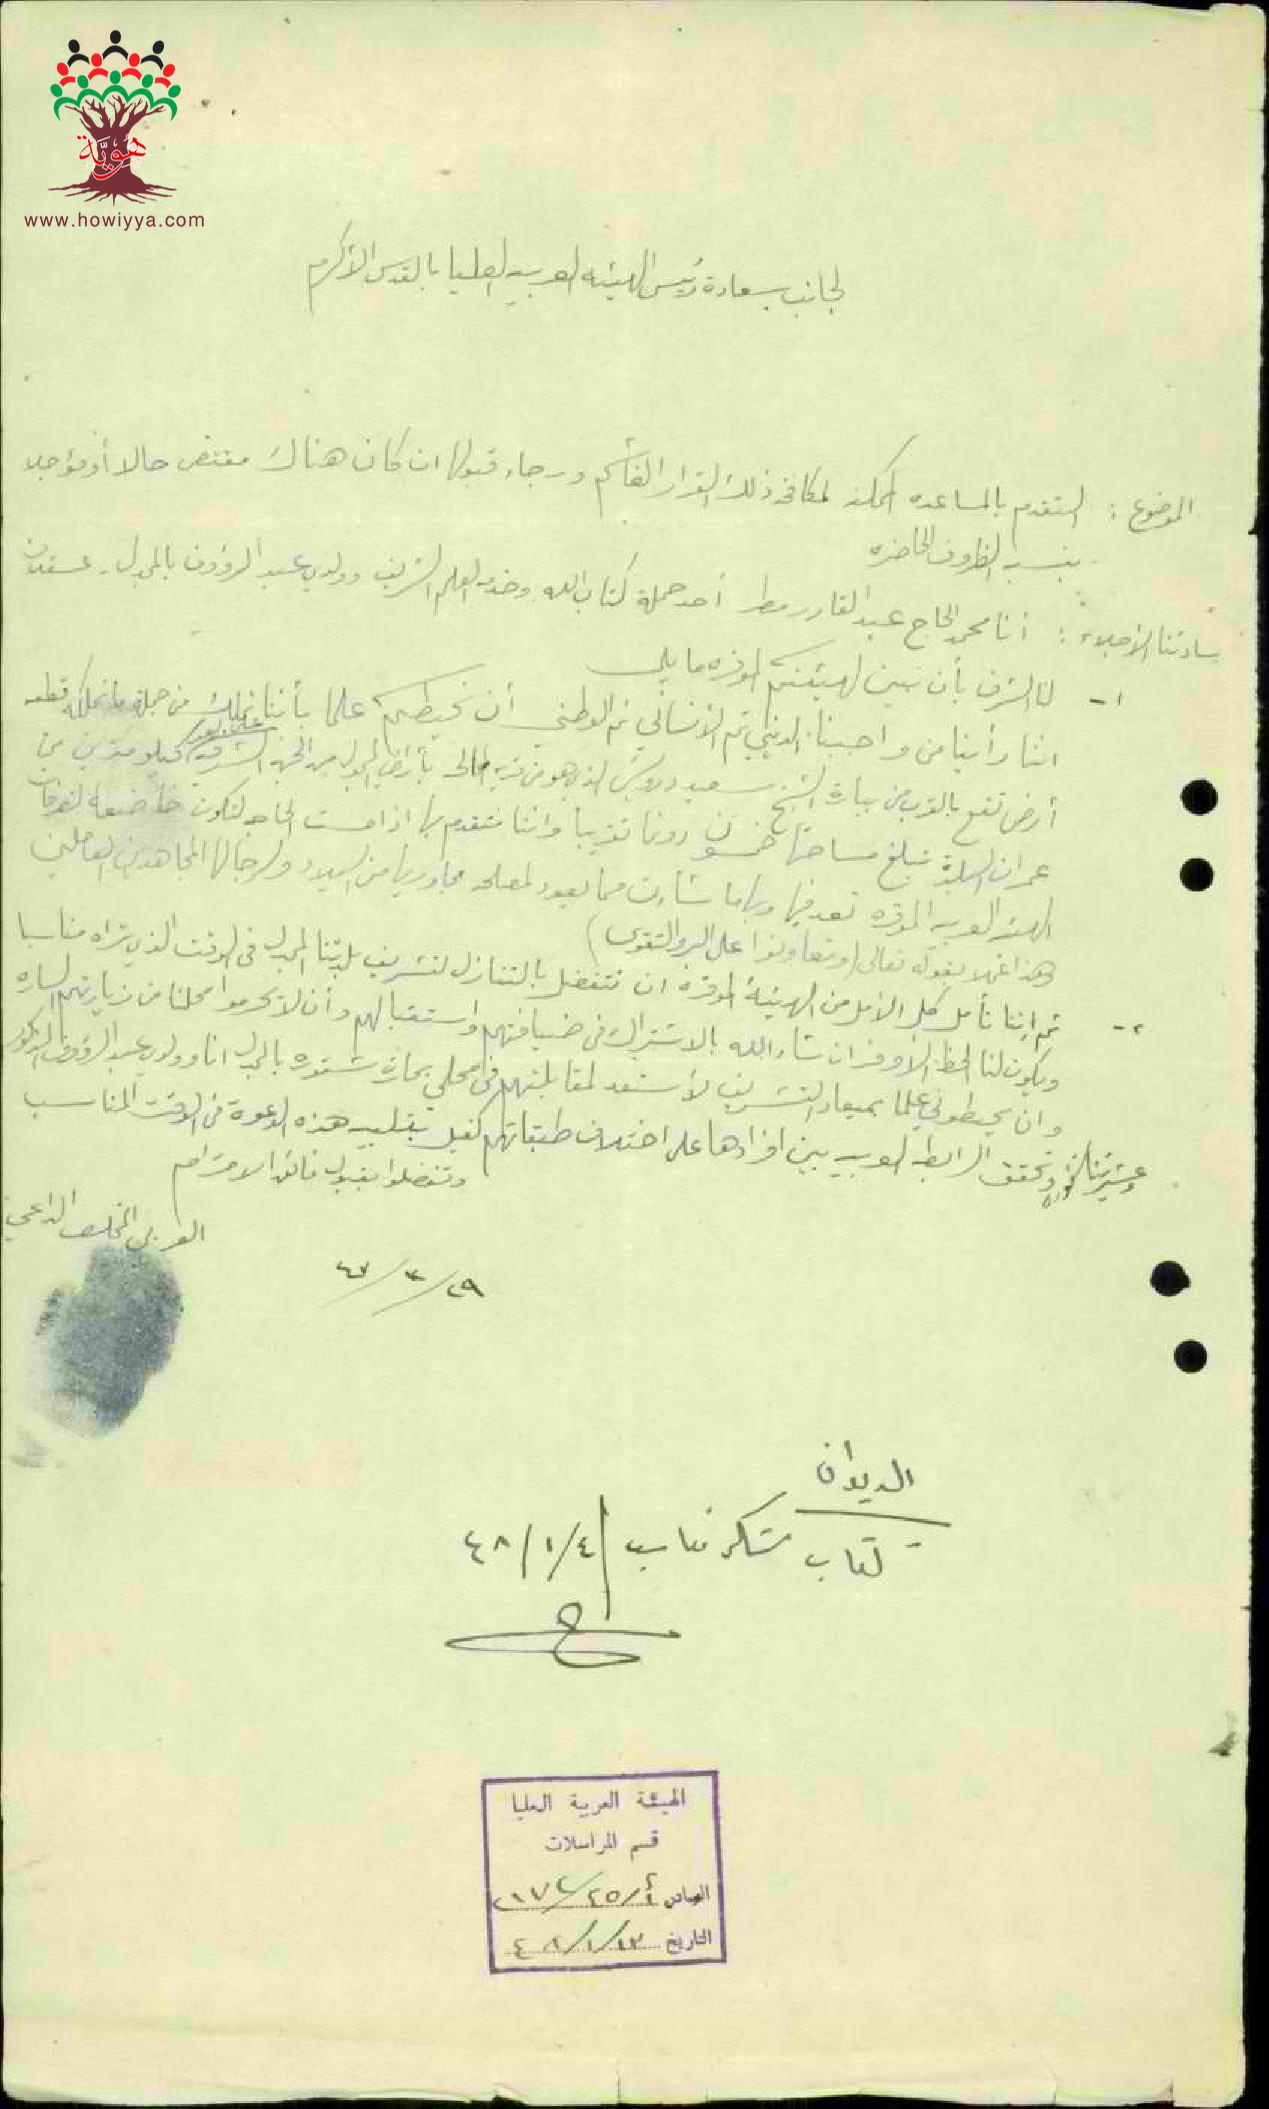 هويّة
www.howiyya.com
لجانب سعادة رئيس الهيئه العربيه العليا بالقدس الأكرم
الموضوع : التقدم بالمساعده الممكنه لمكافحة ذلك القرار الغاشم ورجاء قبولها ان كان هناك مقتضى حالا أو مؤجلا
بنسبة الظروف الحاضره
ساداتنا الأجلاء : أنا محمد الحاج عبد القادر مطر أحد حملة كتاب الله وخدمة العلم الشريف وولدي عبد الرؤوف بالمجدل - عسقلان
لنا الشرف بأن نبين لهيئتكم الموقره ما يلي
١ - اننا رأينا من واجبنا الديني ثم الأنساني ثم الوطني أن نحيطكم علما بأننا نملك من جملة ما نملكه قطعه
أرض تقع بالقرب من بيارة الشيخ سعيد الذي هو من بأراضي المجدل من الجهه الشرقيه على بعد كيلو مترين من
عمران البلدة تبلغ مساحتها خمسون دونما تقريبا واننا نتقدم بها اذا مست الحاجه لتكون خاضعة لتصرفات
الهيئه العربيه الموقره تعد فيها وبها ما شاءت مما يعود لمصلحه مجاوريها من البلاد ولرجالها المجاهدين العاملين
وهذا عملا بقوله تعالى (وتعاونوا على البر والتقوى)
٢ - ثم اننا نأمل كل الأمل من الهيئة الموقرة ان تتفضل بالتنازل لتشريف بلدتنا المجدل في الوقت الذي تراه مناسبا
ويكون لنا الحظ الأوفر ان شاء الله بالاشتراك في ضيافتهم واستقبالهم وأن لا تحرموا محلنا من زيارتهم الساره
وان يحيطوني علما بميعاد التشريف لأستعد لمقابلتهم في محلي بحارة بالمجدل انا وولدي عبد الرؤوف المذكور
وعشيرتنا وتحقق الرابطه العربيه بين افرادها على اختلاف طبقاتهم كفيل بتلبيه هذه الدعوة في الوقت المناسب
وتفضلوا بقبول فائق الاحترام
العربي المخلص الداعي
٤٧/٣/٢٩
الديوان
كتاب شكر مناسب
٤٨/١/٤
الهيئة العربية العليا
قسم المراسلات
الصادر
التاريخ ٤٨/١/١٣